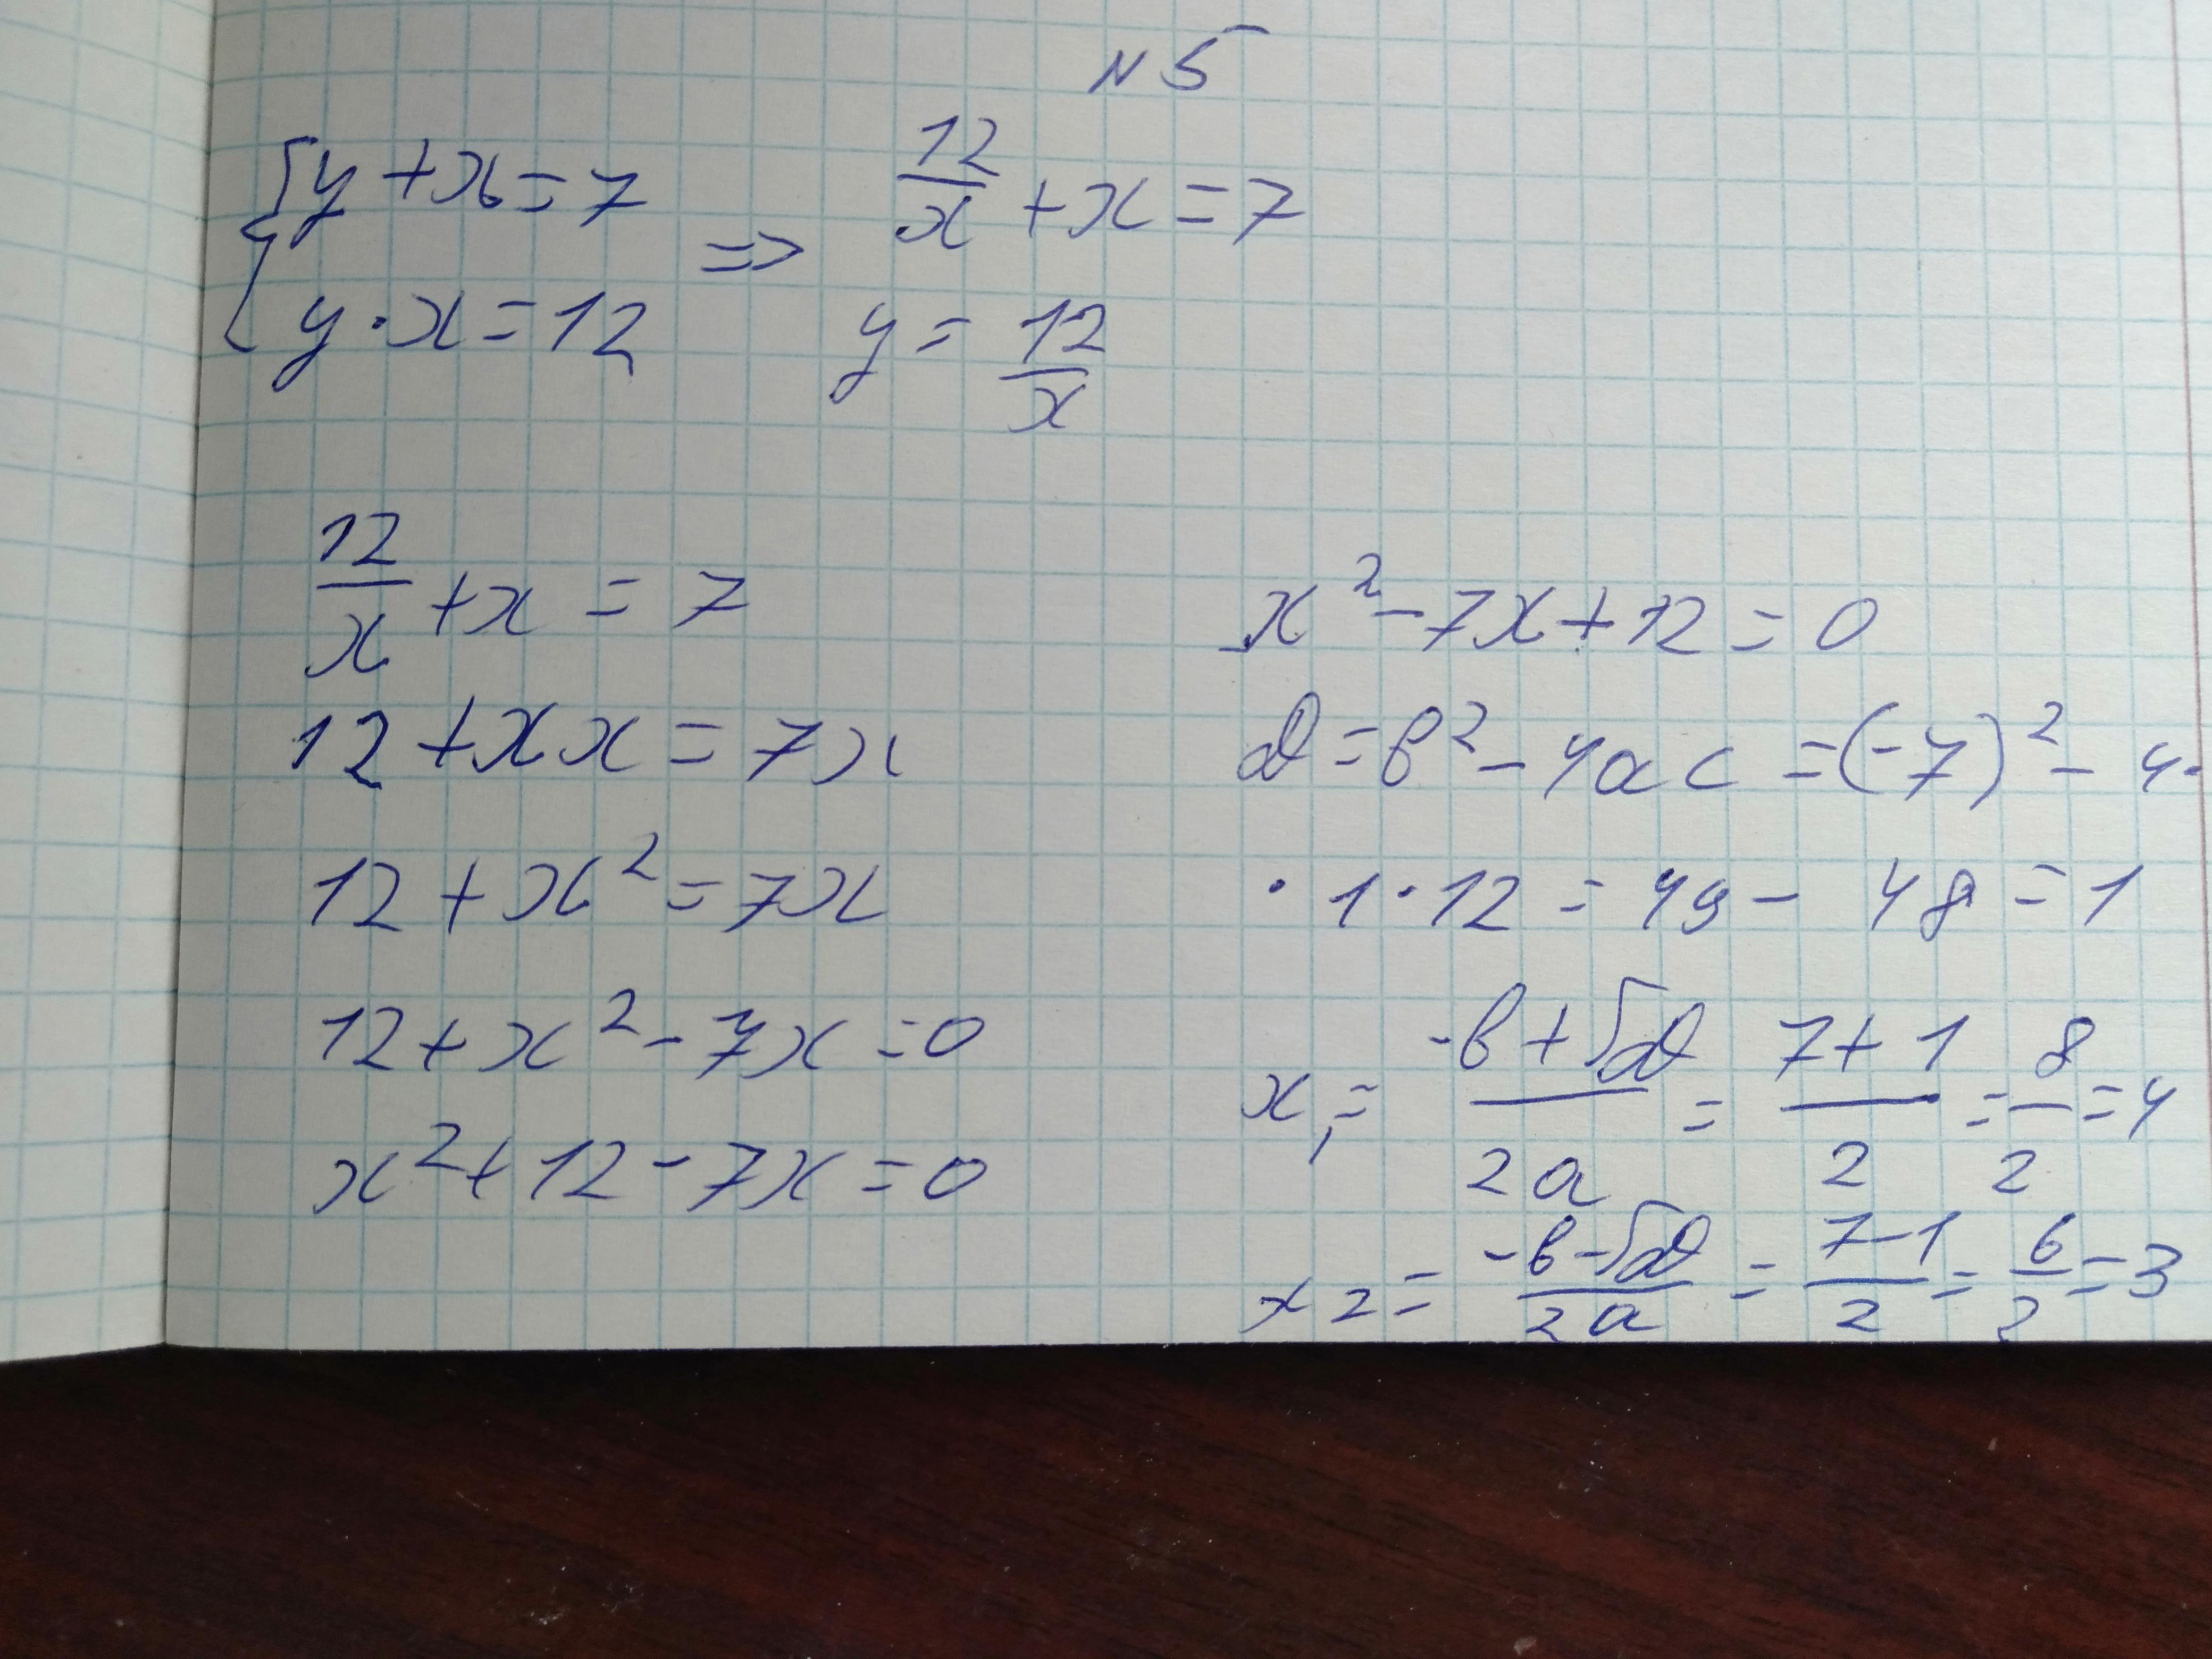 N 5
{ y + x = 7 => 12/x + x = 7
y · x = 12 y = 12/x
12/x + x = 7
12 + x x = 7x
12 + x² = 7x
12 + x² - 7x = 0
x² + 12 - 7x = 0
x² - 7x + 12 = 0
D = b² - 4ac = (-7)² - 4·
· 1 · 12 = 49 - 48 = 1
x₁ = (-b + √D)/2a = (7 + 1)/2 = 8/2 = 4
x2 = (-b - √D)/2a = (7 - 1)/2 = 6/2 = 3